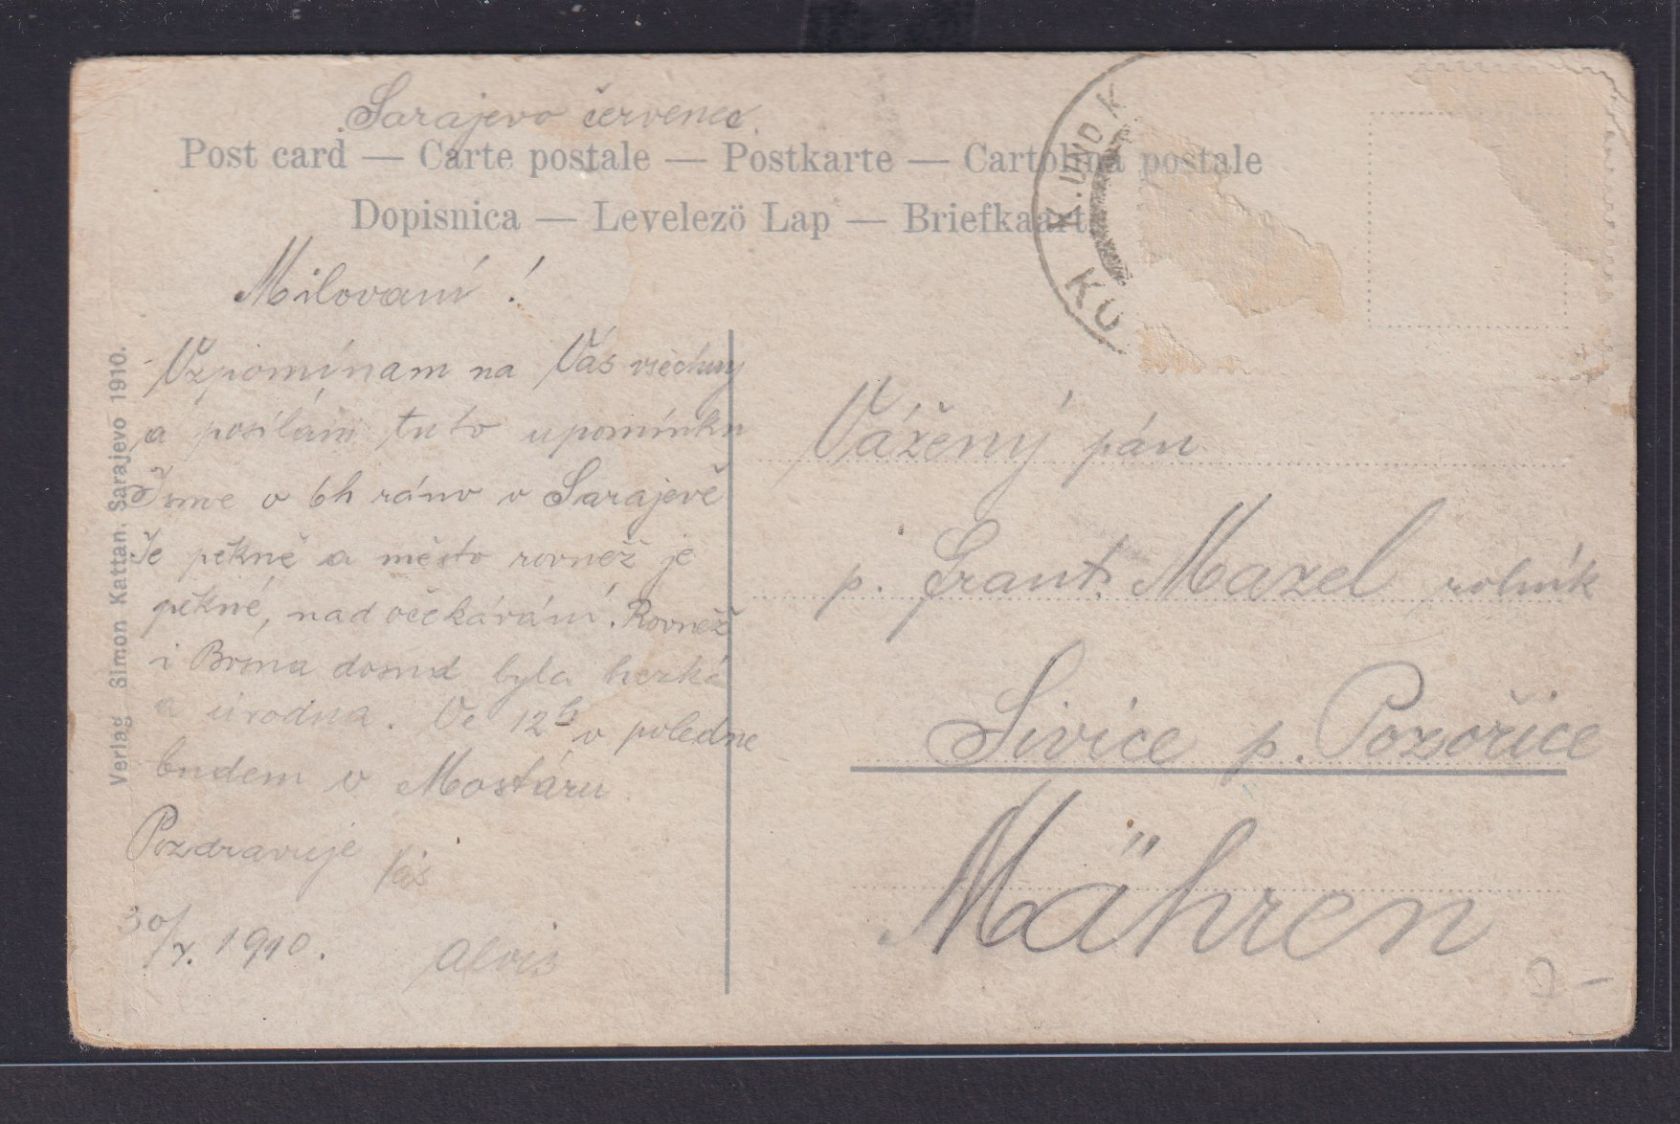 Sarajevo červenec
Post card — Carte postale — Postkarte — Cartolina postale
Dopisnica — Levelezö Lap — Briefkaart
K. UND K
KU
Milovaní!
Vzpomínam na Vás všechny
a posílám tuto upomínku
Jsme o 6h ráno v Sarajevě
Je pěkně a město rovnež je
pěkné, nad očekávání. Rovnež
i Bosna dosud byla hezká
a úrodna. Ve 12h v poledne
budem v Mostáru
Pozdravuje Vás
30/7. 1910.
Alois
Verlag Simon Kattan, Sarajevo 1910.
Vážený pán
p. Frant. Mazel rolník
Sivice p. Pozořice
Mähren